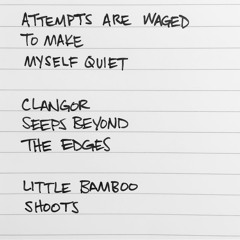 ATTEMPTS ARE WAGED
TO MAKE
MYSELF QUIET
CLANGOR
SEEPS BEYOND
THE EDGES
LITTLE BAMBOO
SHOOTS